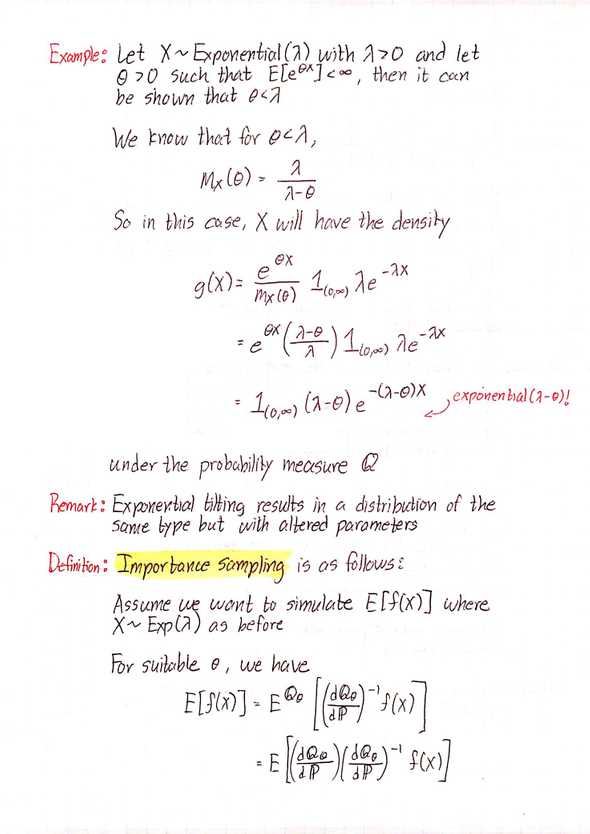 Example: Let X ~ Exponential(λ) with λ>0 and let
θ>0 such that E[e^{θX}]<∞, then it can
be shown that θ<λ
We know that for θ<λ,
M_X(θ) = λ/(λ-θ)
So in this case, X will have the density
g(x) = e^{θx}/M_X(θ) 1_{(0,∞)} λe^{-λx}
= e^{θx} ((λ-θ)/λ) 1_{(0,∞)} λe^{-λx}
= 1_{(0,∞)} (λ-θ) e^{-(λ-θ)x} exponential(λ-θ)!
under the probability measure Q
Remark: Exponential tilting results in a distribution of the
same type but with altered parameters
Definition: Importance sampling is as follows:
Assume we want to simulate E[f(X)] where
X ~ Exp(λ) as before
For suitable θ, we have
E[f(X)] = E^{Q_θ} [(dQ_θ/dP)^{-1} f(X)]
= E[(dQ_θ/dP)(dQ_θ/dP)^{-1} f(X)]